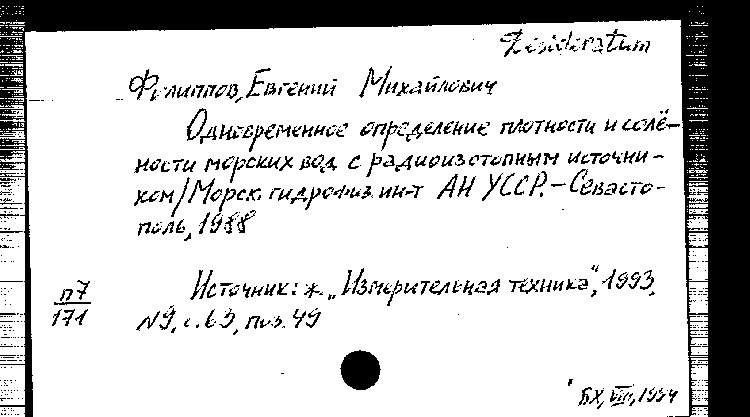 Desideratum
Филиппов, Евгений Михайлович
Одновременное определение плотности и солё-
ности морских вод с радиоизотопным источни-
ком / Морск. гидрофиз. ин-т АН УССР. – Севасто-
поль, 1988
п7
171
Источник: ж. „Измерительная техника“, 1993,
N9, с. 63, поз. 49
БХ, VIII, 1994